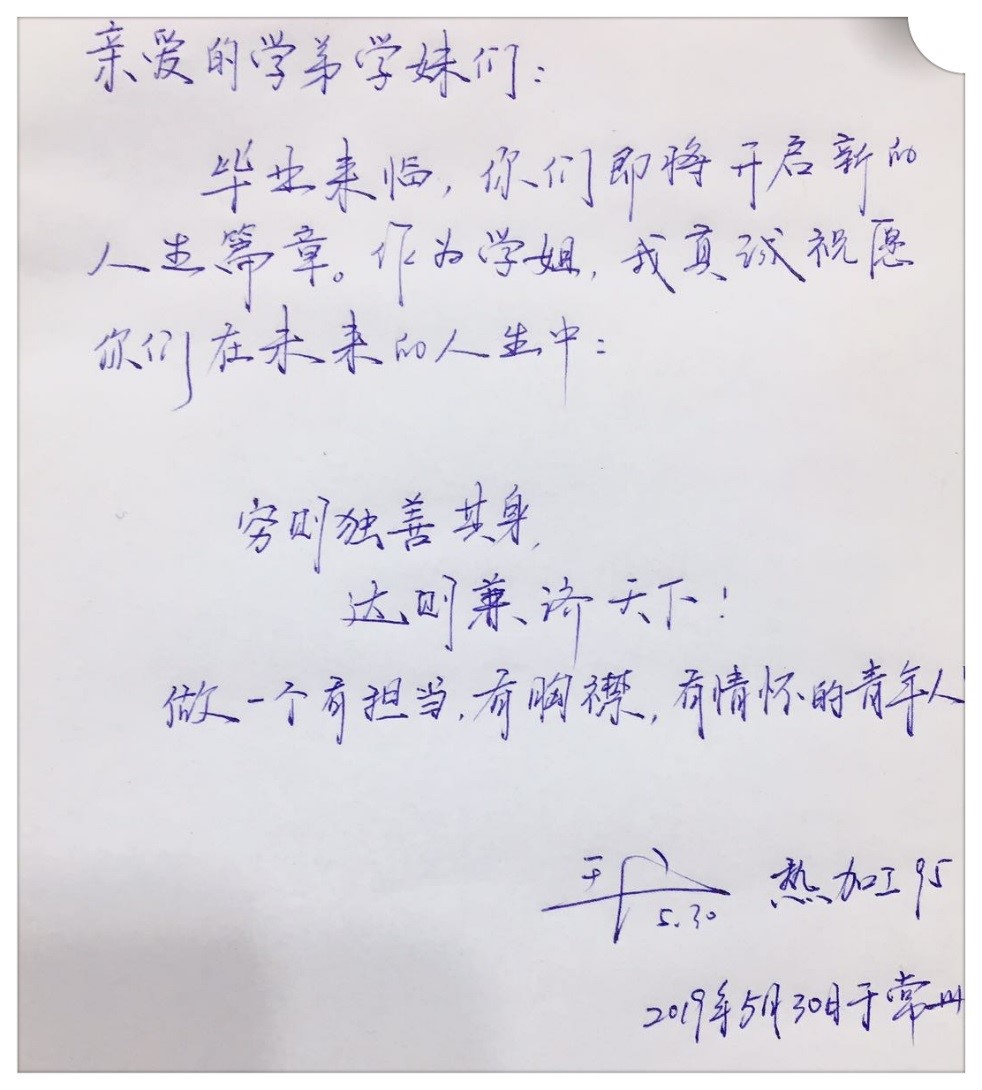 亲爱的学弟学妹们：
毕业来临，你们即将开启新的
人生篇章。作为学姐，我真诚祝愿
你们在未来的人生中：
穷则独善其身，
达则兼济天下！
做一个有担当，有胸襟，有情怀的青年人
热加工95
5.30
2019年5月30日于常州